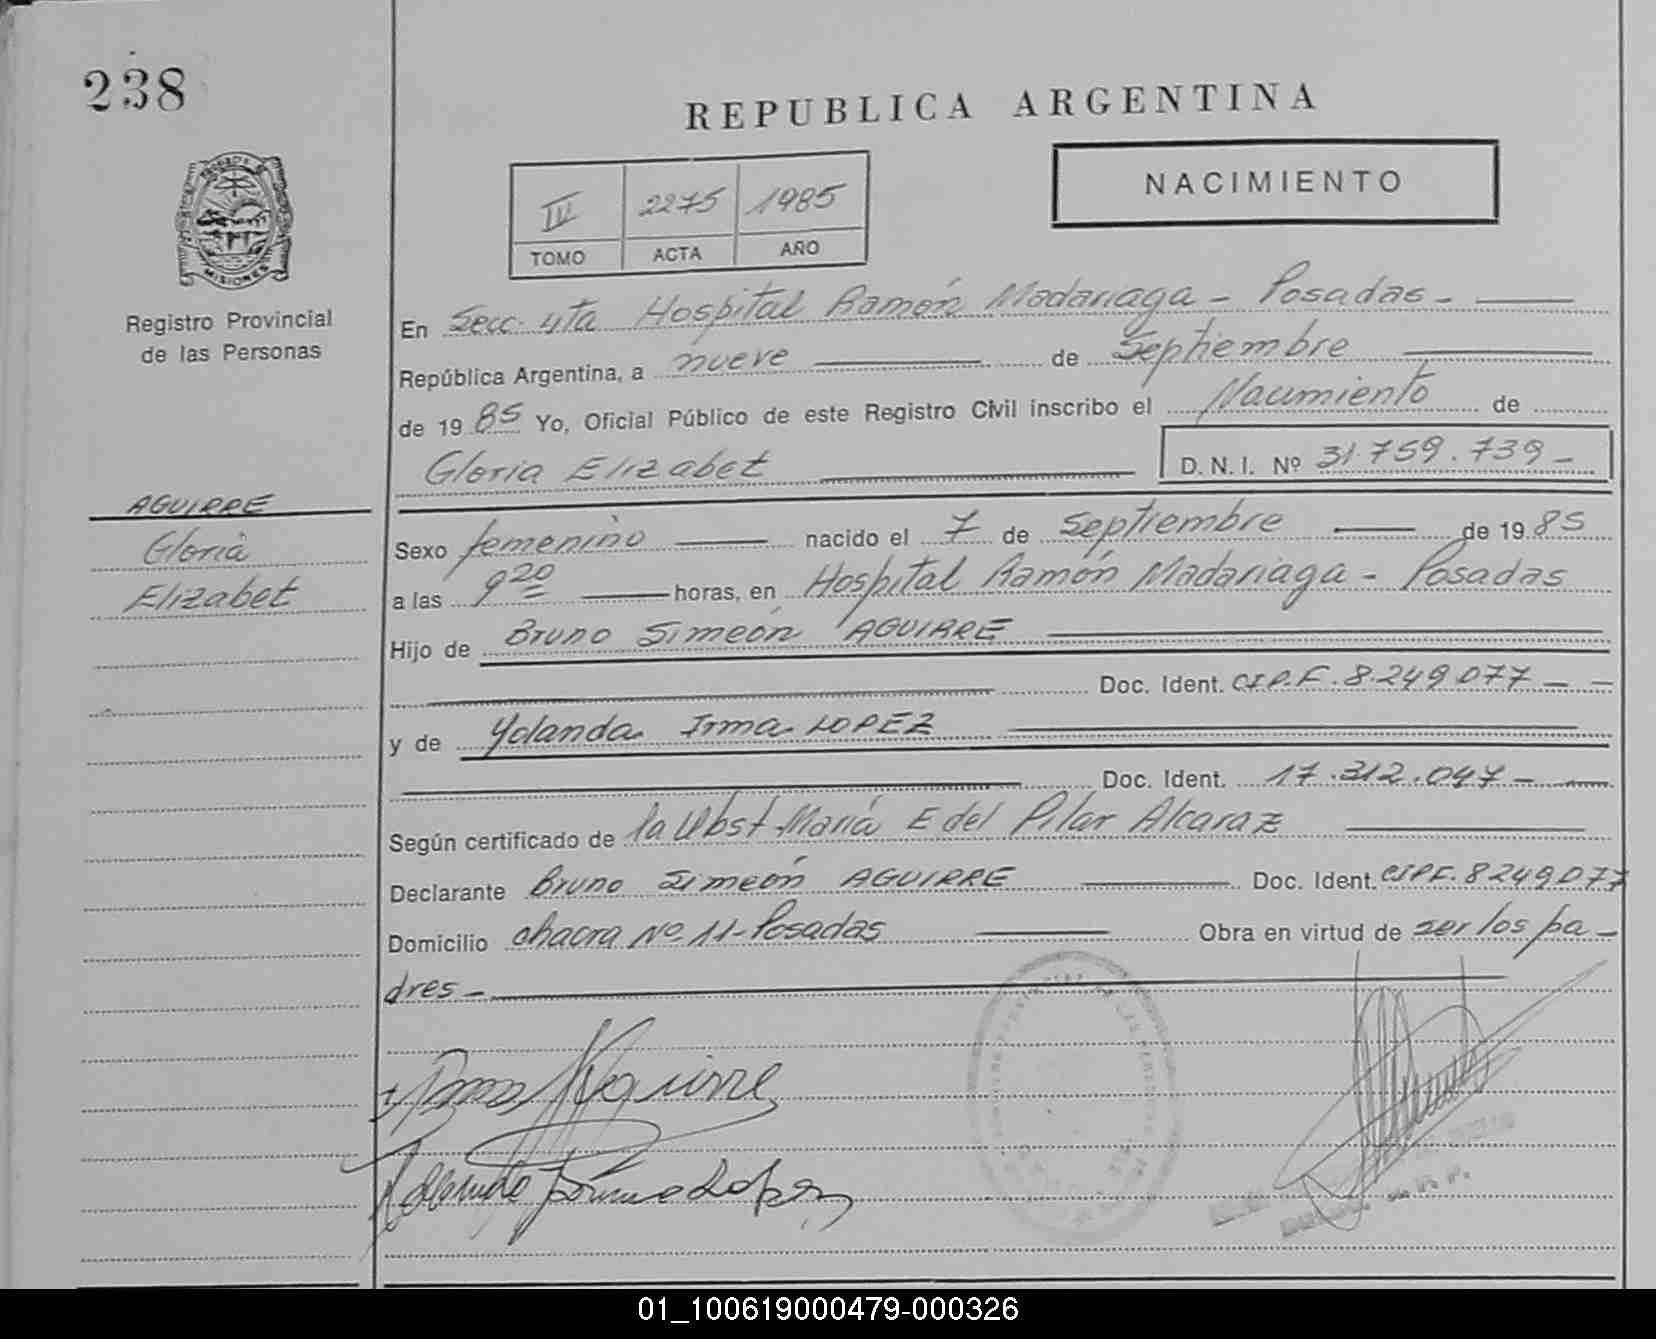 238
REPUBLICA ARGENTINA
NACIMIENTO
IV 2275 1985
TOMO ACTA AÑO
MISIONES
Registro Provincial
de las Personas
En Secc. 4ta Hospital Ramón Madariaga - Posadas -
República Argentina, a nueve de Septiembre
de 19 85 Yo, Oficial Público de este Registro Civil inscribo el Nacimiento de
Gloria Elizabet D.N.I. Nº 31.759.739 -
AGUIRRE
Gloria
Elizabet
Sexo femenino nacido el 7 de Septiembre de 19 85
a las 9 20 horas, en Hospital Ramón Madariaga - Posadas
Hijo de Bruno Simeón AGUIRRE
Doc. Ident. CIPF. 8.249.077 - -
y de Yolanda Irma LOPEZ
Doc. Ident. 17.312.047 -
Según certificado de la Obst María E del Pilar Alcaraz
Declarante Bruno Simeón AGUIRRE Doc. Ident. CIPF. 8249077
Domicilio chacra Nº 11 - Posadas Obra en virtud de ser los pa -
dres -
Aguirre
01_100619000479-000326